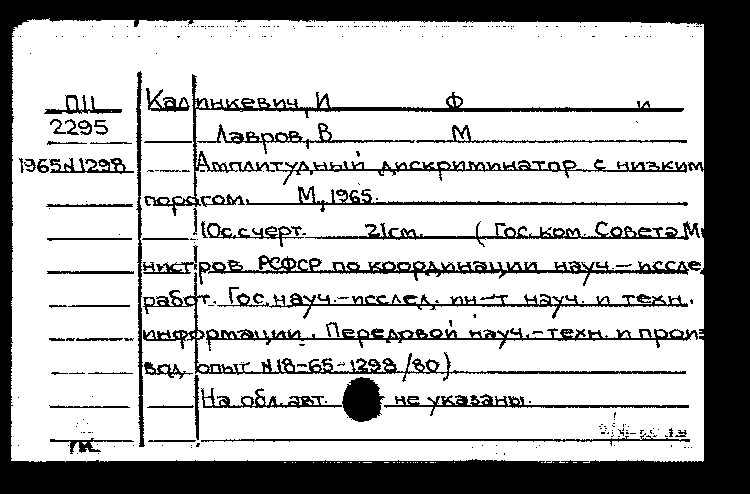 П11 Кадинкевич, И Ф и
2295 Лавров, В М
1965 N1298 Амплитудный дискриминатор с низким
порогом. М, 1965.
10с.с черт. 21см. (Гос. ком. Совета Ми
нистров РСФСР по координации науч-иссле
работ. Гос. науч.-исслед. ин-т науч. и техн.
информации. Передовой науч.-техн. и произ
вод опыт N18-65-1298/80).
На обл. авт. не указаны.